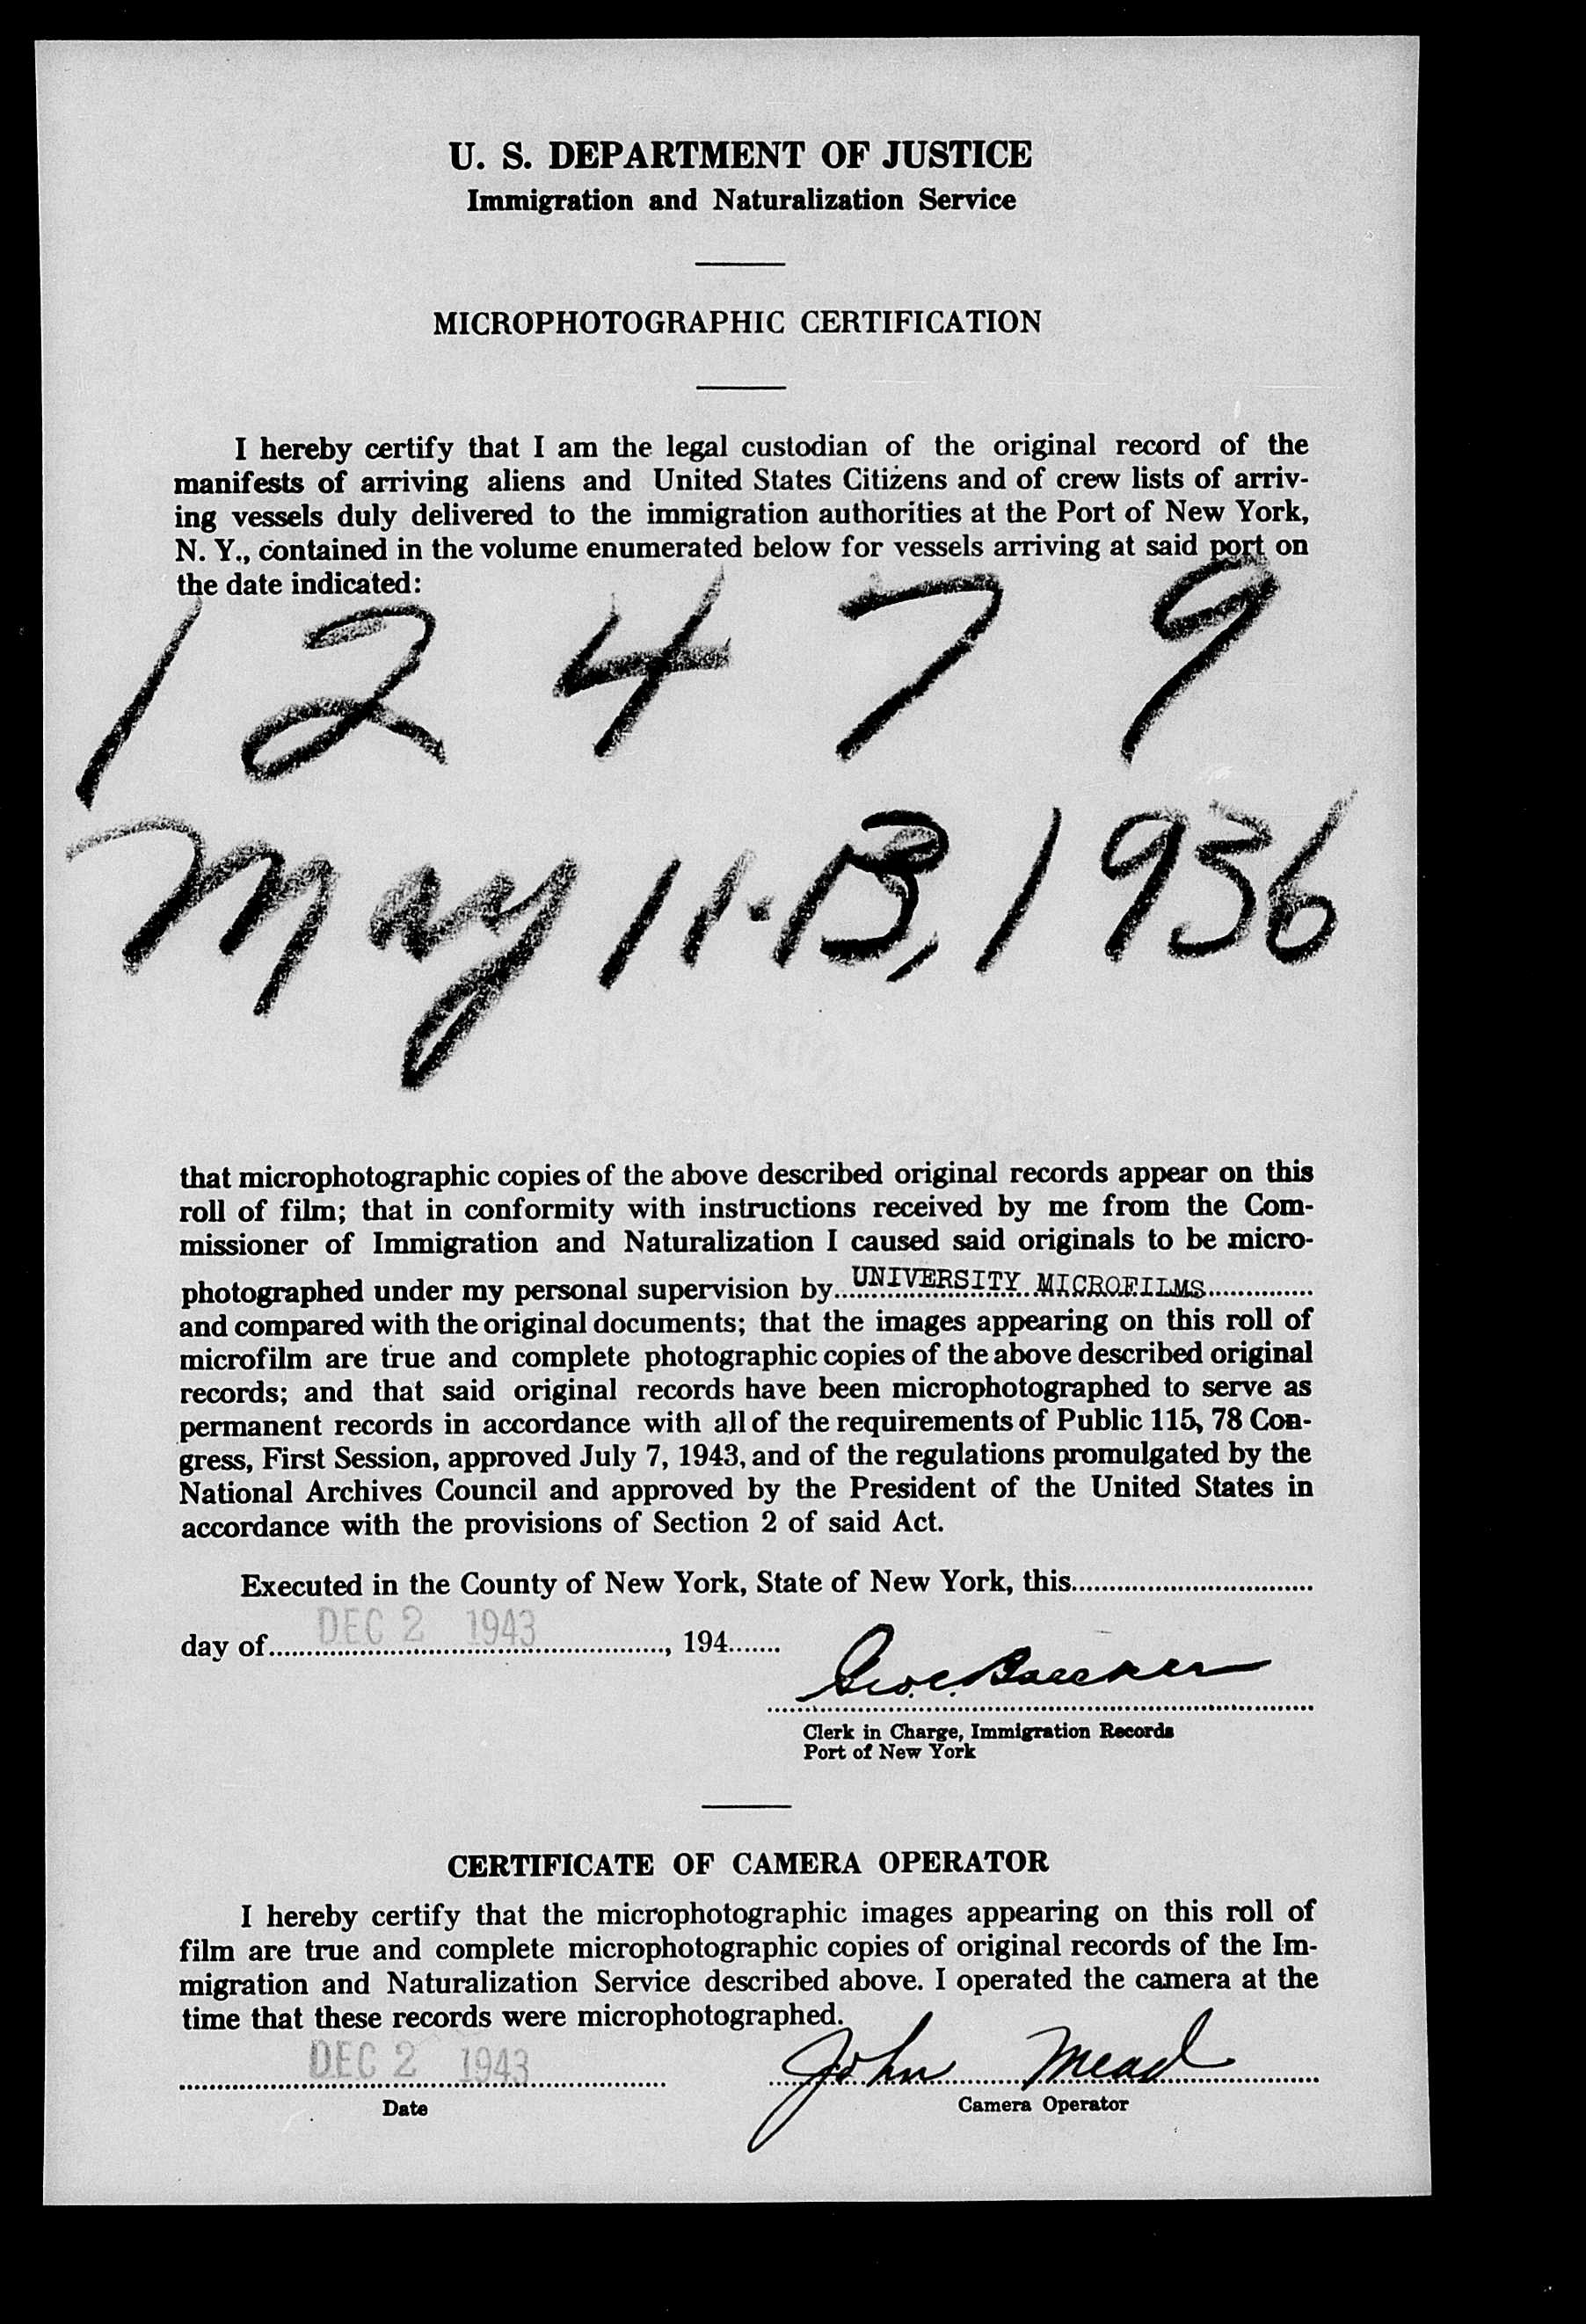 U. S. DEPARTMENT OF JUSTICE
Immigration and Naturalization Service
MICROPHOTOGRAPHIC CERTIFICATION
I hereby certify that I am the legal custodian of the original record of the
manifests of arriving aliens and United States Citizens and of crew lists of arriv-
ing vessels duly delivered to the immigration authorities at the Port of New York,
N. Y., contained in the volume enumerated below for vessels arriving at said port on
the date indicated:
1 2 4 7 9
May 11-13, 1936
that microphotographic copies of the above described original records appear on this
roll of film; that in conformity with instructions received by me from the Com-
missioner of Immigration and Naturalization I caused said originals to be micro-
photographed under my personal supervision by UNIVERSITY MICROFILMS
and compared with the original documents; that the images appearing on this roll of
microfilm are true and complete photographic copies of the above described original
records; and that said original records have been microphotographed to serve as
permanent records in accordance with all of the requirements of Public 115, 78 Con-
gress, First Session, approved July 7, 1943, and of the regulations promulgated by the
National Archives Council and approved by the President of the United States in
accordance with the provisions of Section 2 of said Act.
Executed in the County of New York, State of New York, this
day of DEC 2 1943, 194
Clerk in Charge, Immigration Records
Port of New York
CERTIFICATE OF CAMERA OPERATOR
I hereby certify that the microphotographic images appearing on this roll of
film are true and complete microphotographic copies of original records of the Im-
migration and Naturalization Service described above. I operated the camera at the
time that these records were microphotographed.
DEC 2 1943 John Mead
Date Camera Operator